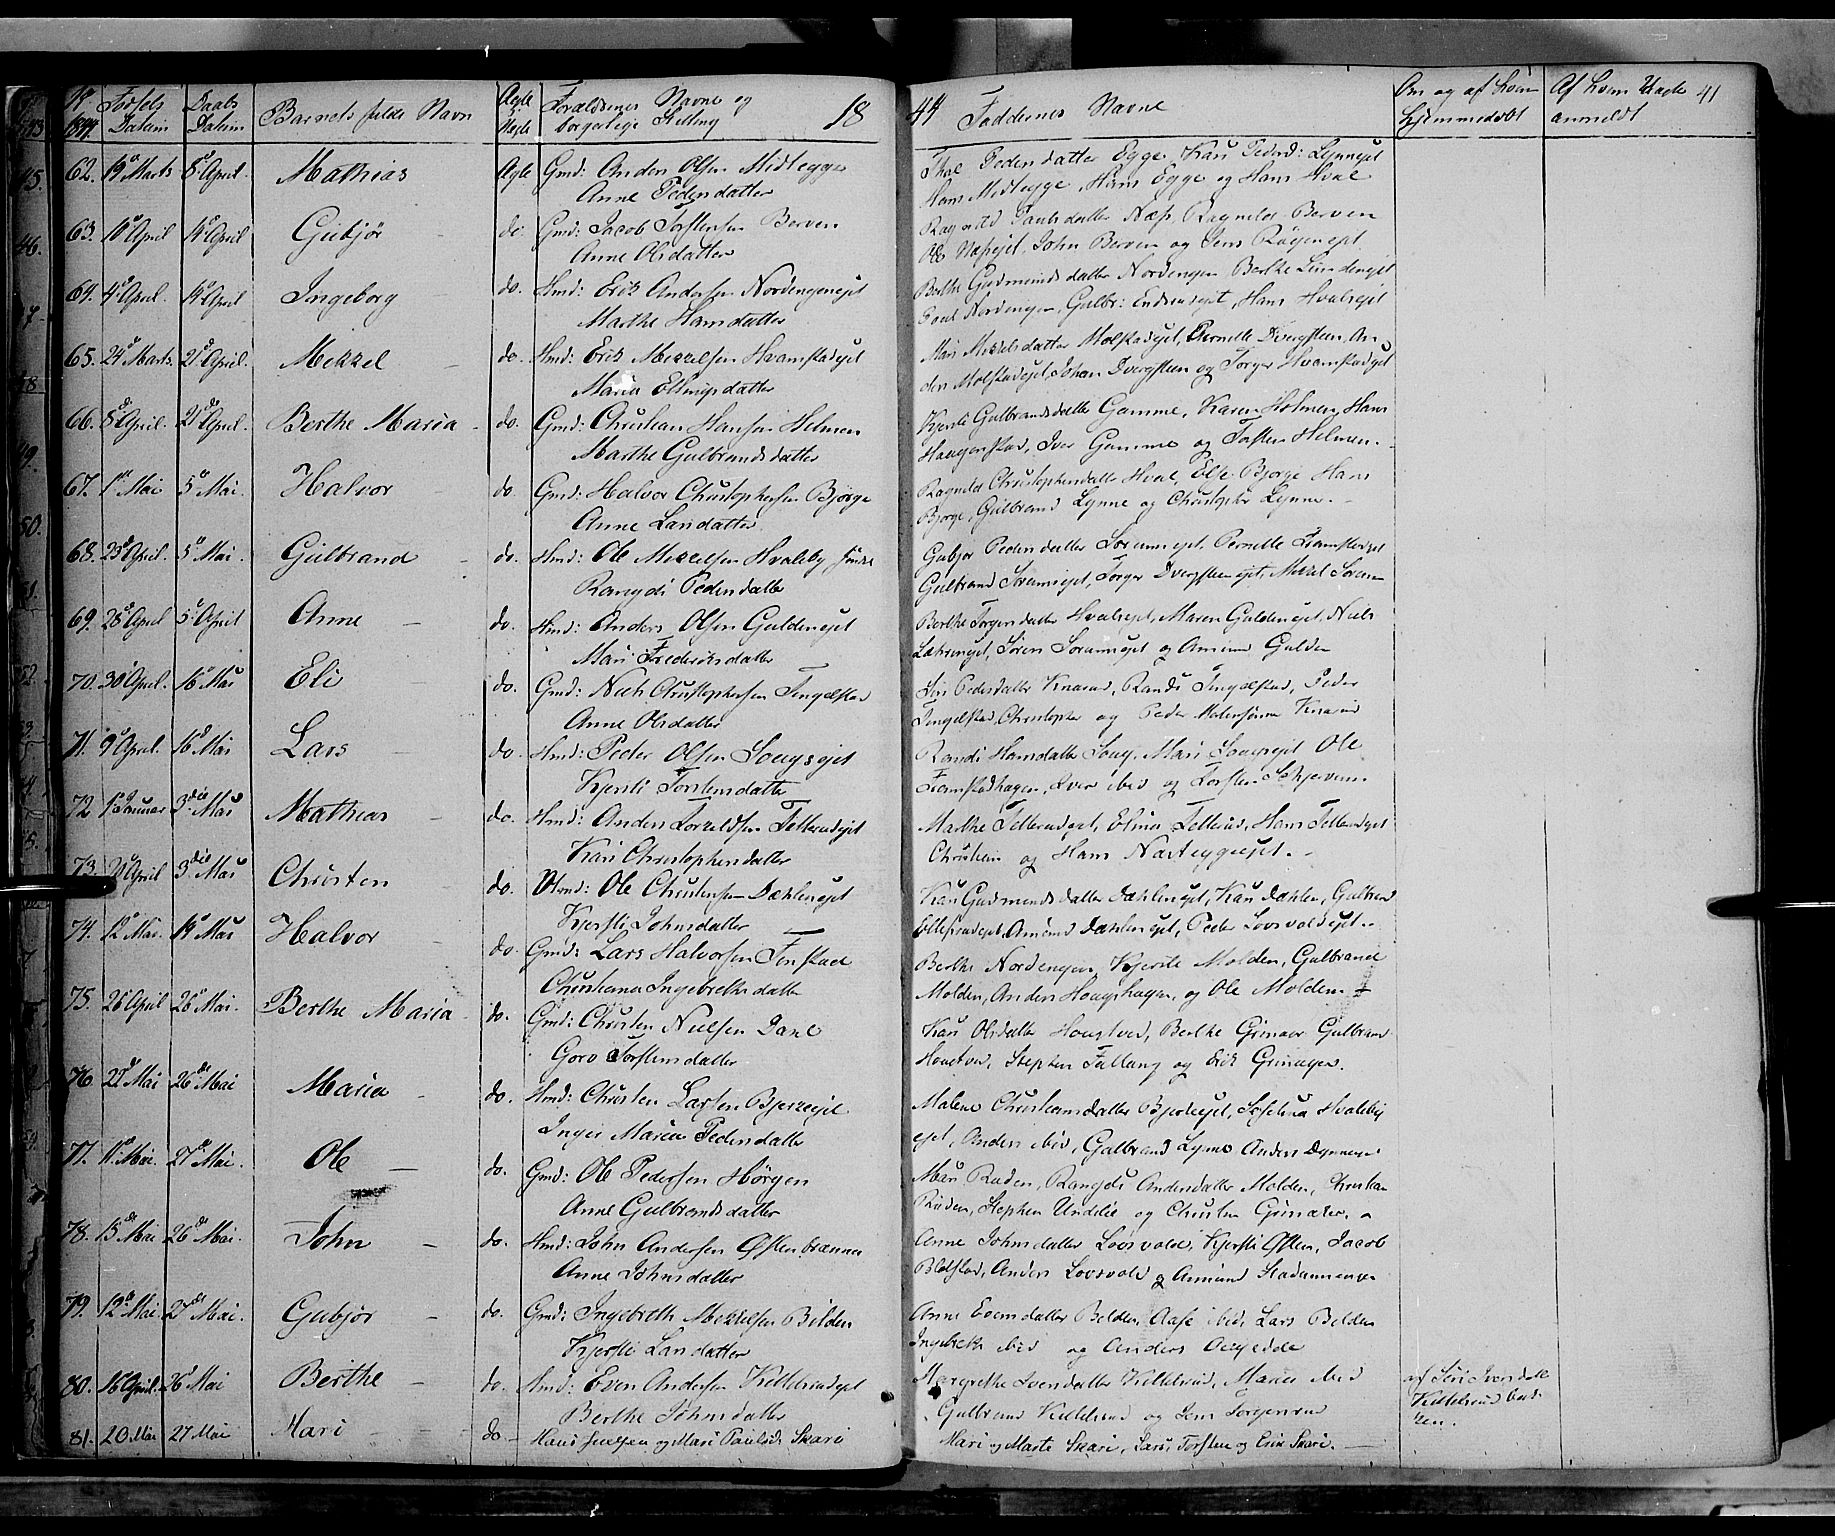 No 1844. Fødsels Datum Daabs Datum Barnets fulde Navn Ægte Uægte Forældrenes Navne og borgerlige Stilling 18
44 Faddernes Navne Om og af hvem Hjemmedøbt Af hvem Daab anmeldt 41
62. 19 Marts 8 April. Mathias Ægte Gmd: Anders Olsen Midtegge
Anne Pedersdatter
Pedersdatter Egge, Kari Pedersd: Lynneejet
Hans Midtegge, Hans Egge og Hans Hval
63. 10 April 14 April Gubjør do. Gmd: Jacob Torstensen Berven
Anne Olsdatter
Ragnild Paulsdatter Næs, Ragnilde Berven
Ole Næsejet, John Berven og Jens Røgenejet
64. 4 April. 14 April Ingeborg do. Hmd: Erik Andersen Nordengenejet
Marthe Hansdatter
Berthe Gudmundsdatter Nordengen Berthe Lindenejet
Poul Nordengen, Gulbr: Endrudejet, Hans Hvalsejet
65. 24 Marts. 21 April. Mekkel do. Hmd: Erik Mekkelsen Hvamstadejet
Maria Ellingsdatter
Mari Mikkelsdatter Molstadejet, Pernelle Dvergsten, An-
ders Molstadejet, Johan Dvergsten og Torger Hvamstadejet
66. 8 April. 21 April. Berthe Maria do. Gmd: Christian Hansen Helmen
Marthe Gulbrandsdatter
Kjersti Gulbrandsdatter Gamme, Karen Holmen, Hans
Haagenstad, Iver Gamme og Torsten Helmen.
67. 1 Mai 5 Mai. Halvor do. Gmd: Halvor Christophersen Bjørge
Anne Larsdatter.
Ragnild Christophersdatter Hval, Else Bjørge Hans
Bjørge, Gulbrand Lynne og Christopher Lynne.
68. 23 April. 5 Mai. Gulbrand do. Hmd: Ole Mekkelsen Hvaleby
Rangdi Pedersdatter
Gubjør Pedersdatter Sørumsejet, Pernelle Framstadejet
Gulbrand Sørumsejet, Torger Dvergstenejet, Mekkel Sørum
69. 28 April 5 April Anne do. Hmd: Anders Olsen Guldenejet
Mari Fredriksdatter
Berthe Torgersdatter Hvalsejet, Maren Guldenejet, Niels
Sørumsejet og Amund Gulden
70. 30 April. 16 Mai Eli do. Gmd: Niels Christophersen Tingelstad
Anne Olsdatter
Siri Pedersdatter Knarud, Randi Tingelstad, Peder
Tingelstad, Christopher og Peder Knarud
71. 9 April. 16 Mai Lars do. Hmd: Peder Olsen Sougsejet
Kjersti Torstensdatter
Randi Hansdatter Soug, Mari Sougsejet Ole
Framstadhagen, Iver ibid og Torsten Skjervum
72 1 Januar 3die Mai Mathias do. Hmd: Anders Torkeldsen Tellerudejet
Kari Christophersdatter
Marthe Tellerudejet, Elina Tellerud, Hans Tellerudejet
Christian og Hans Nasteggeejet.
73. 20 April 3die Mai Christen do. Hmd: Ole Christensen Dæhlenejet
Kjersti Johnsdatter
Kari Gudmundsdatter Dæhlenejet, Kari Dæhlen, Gulbrand
Amund Dæhlenejet, Peder Lovsvoldejet.
74. 12 Mai. 19 Mai Halvor do. Gmd: Lars Halvorsen Finstad
Christiana Ingebrethsdatter
Berthe Nordengen, Kjersti Molden, Gulbrand
Molden, Anders Hougshagen, og Ole Molden.
75. 26 April 26 Mai. Berthe Maria do. Gmd: Christen Nielsen Dahl
Goro Torstensdatter
Kari Olsdatter Hougtved, Berthe Grinager Gulbrand
Hougtved, Stephen Fallang og Erik Grinager.
76. 22 Mai 26 Mai Maria do. Hmd: Christen Larsen Bjerkeejet
Inger Maria Pedersdatter
Malene Christiansdatter Bjerkeejet, Josefina Hvaleby
ejet, Anders ibid, Gulbrand Lynne Anders Lynneejet
77. 11 Mai. 27 Mai. Ole do. Gmd: Ole Pedersen Hørgen
Anne Gulbrandsdatter
Mari Ruden, Rangdi Andersdatter Molden, Kristian
Ruden, Stephen Undelie og Christen Grinaker.
78. 15 Mai 26 Mai. John do. Hmd: John Andersen Østenbrænna
Anne Johnsdatter
Anne Johnsdatter Lovsvold, Kjersti Østen, Jacob
Blæstad, Anders Lovsvold og Amund
79. 12 Mai 27 Mai. Gubjør do. Gmd: Ingebreth Mekkelsen Bilden
Kjersti Larsdatter
Anne Evensdatter Bilden, Aase ibid, Lars Bilden
Ingebreth ibid og Anders
80. 16 April. 26 Mai Berthe do. Hmd: Even Andersen Kittelsrudejet
Berthe Johnsdatter
Margrethe Iversdatter Kittelsrud, Maria ibid
Gulbrand Kittelsrud og Jens Torgersrud
af Siri Iversdatter
Kittelsrud
81. 20 Mai 27 Mai Mari do. Hans Juelsen og Mari Paulsd: Skari
Mari og Marte Skari, Lars, Torsten og Erik Skari.